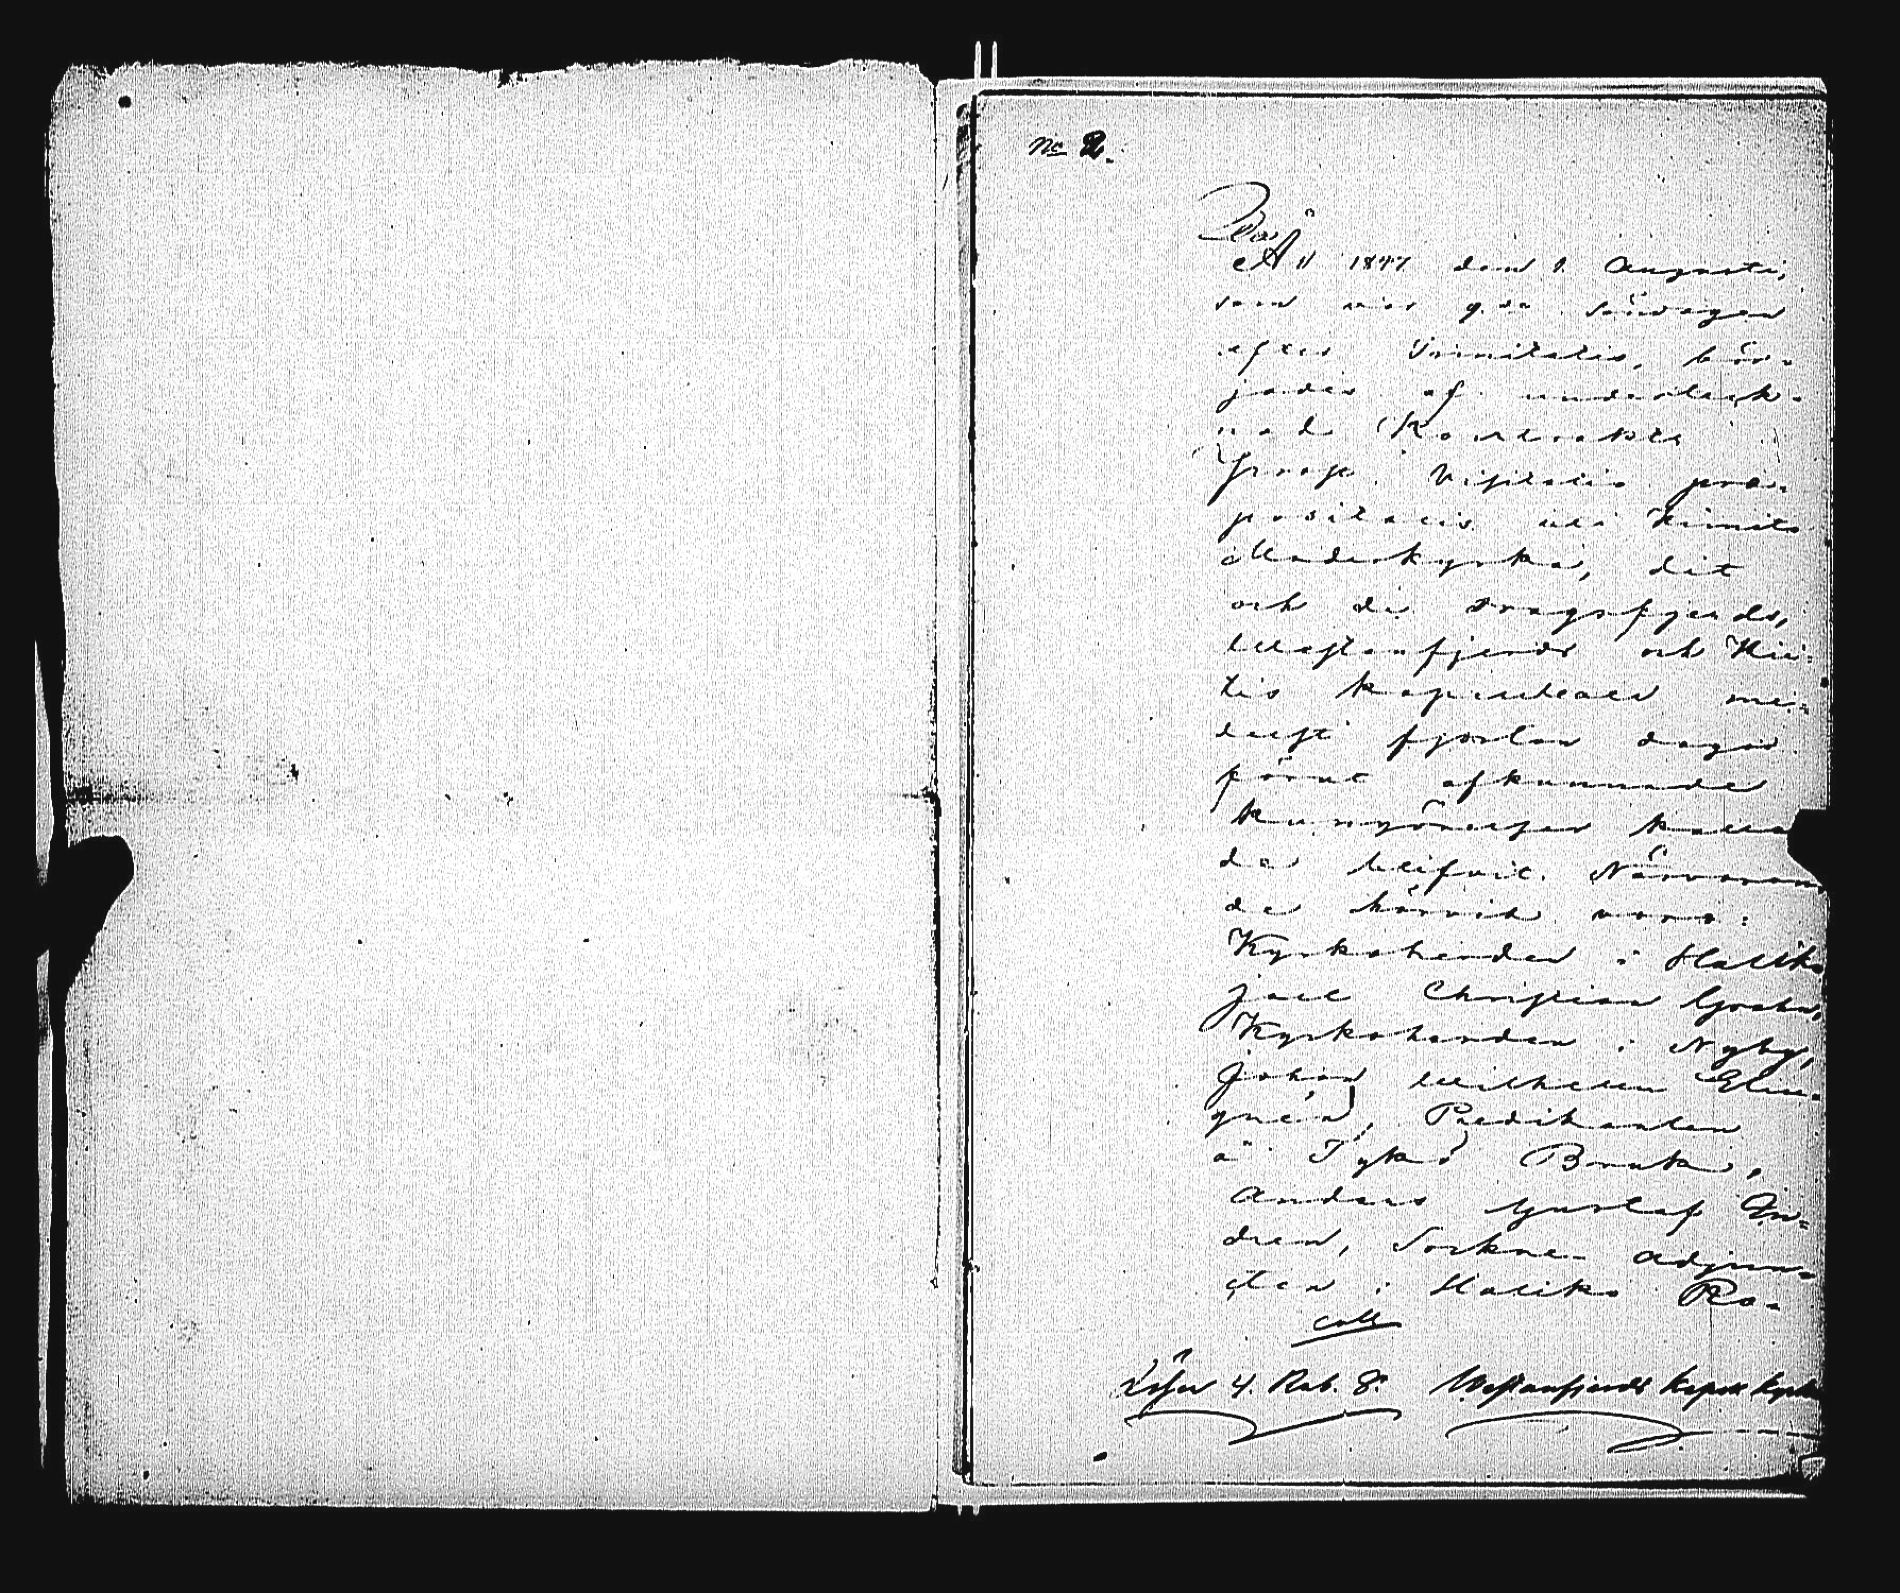 No 2.
År 1847 den 1 Augusti,
som war 9de söndagen
efter Trinitatis, bör-
jades af underteck-
nad Kontrakts
prost Visitatio præ-
positalis uti Kimito
Moderkyrka, dit
och de Dragsfjerds,
Westanfjerds och Hii-
tis kapellboer me-
delst fjorton dagar
förut afkunnade
kungörelser kalla-
de blifvit. Närvaran-
de härvid voro:
Kyrkoherden i Haliko
Joel Christian
Kyrkoherden i Nyby,
Johan Wilhelm Elm-
gren, Predikanten
å Tykö Bruk,
Anders Gustaf
dren, Sockne Adjunc-
ten i Haliko
coll
4. Rub. 8. Westanfjerds Kapell Kyrka